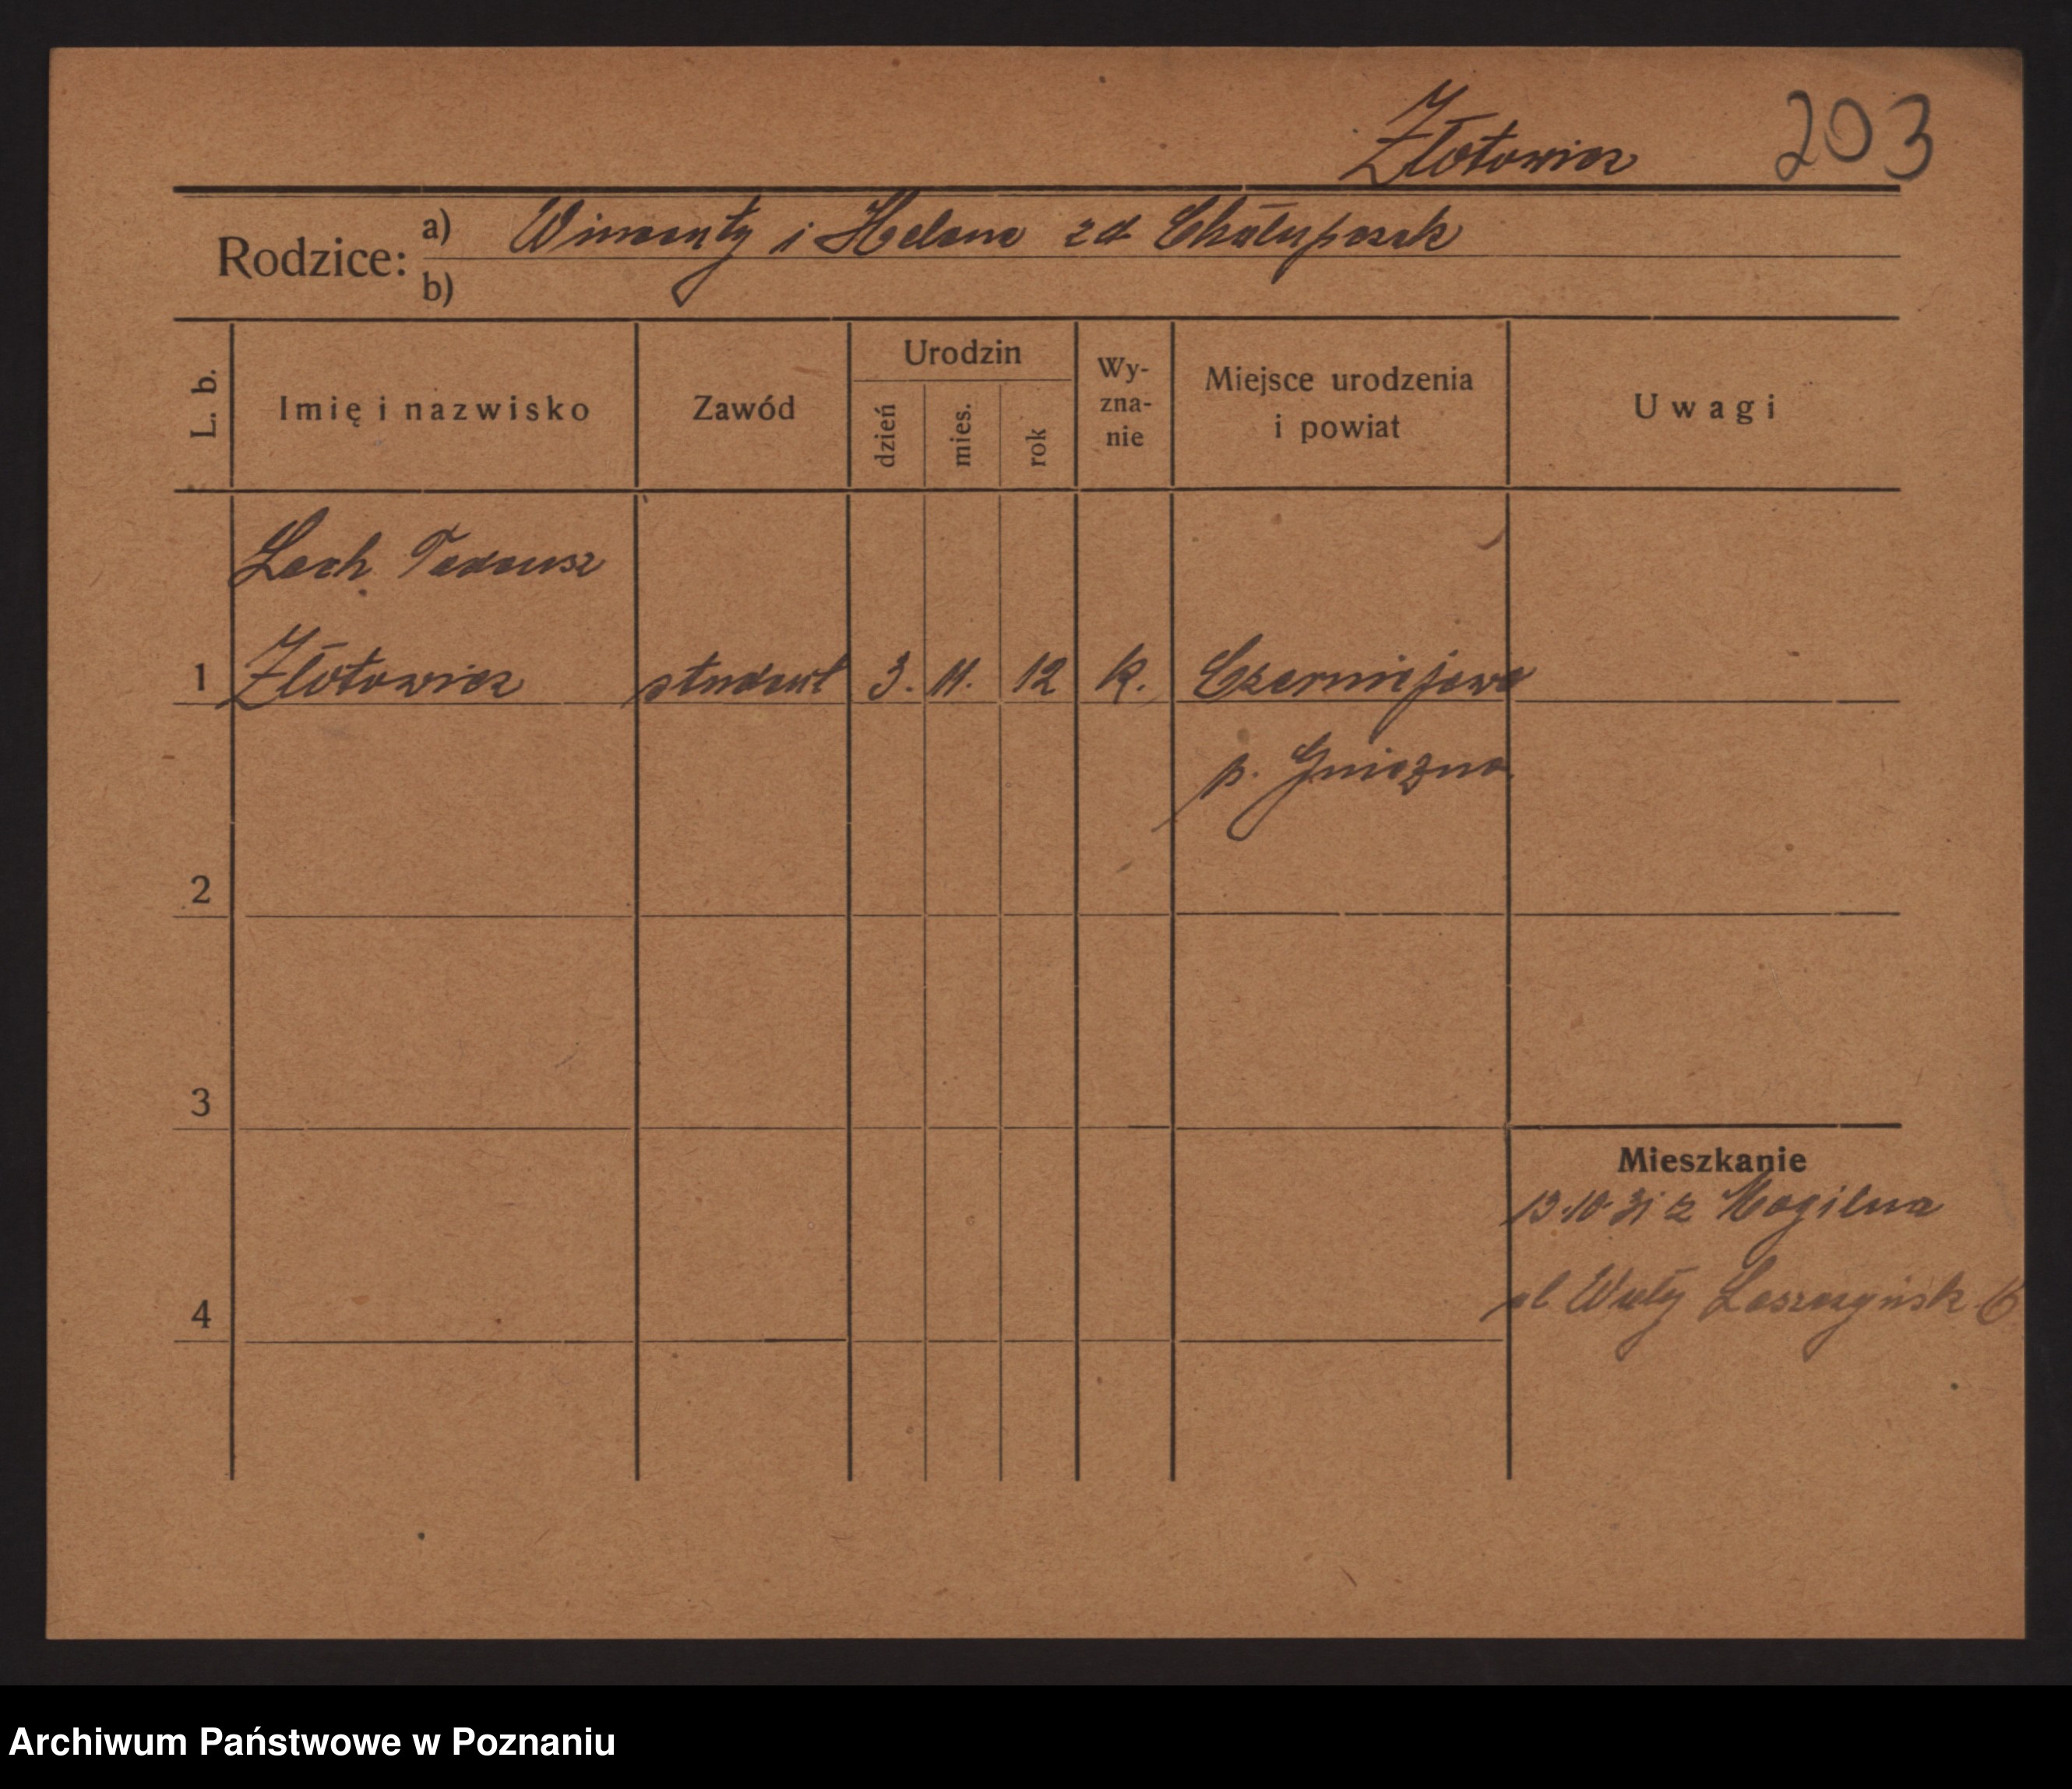 Złotowicz 203
Rodzice: a) Wincenty i Helena zd Chałupczak
b)
L. b. Imię i nazwisko Zawód Urodzin dzień mies. rok Wy-zna-nie Miejsce urodzenia i powiat Uwagi
Lech Tadeusz
1 Złotowicz student 3. 11. 12 k. Czerniejewo
p. Gniezno
2
3
Mieszkanie
13.10.31 z Mogilna
4 ul Wały Leszczyńsk
Archiwum Państwowe w Poznaniu